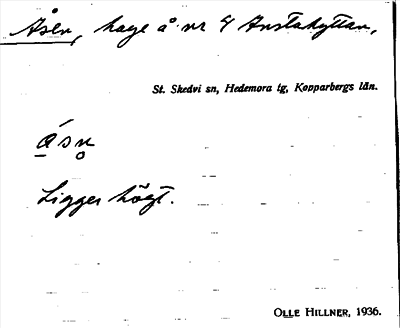 Åsen, hage å nr 4 Anstahyttan,
St. Skedvi sn, Hedemora tg, Kopparbergs län.
ásn̥
Ligger högt.
OLLE HILLNER, 1936.